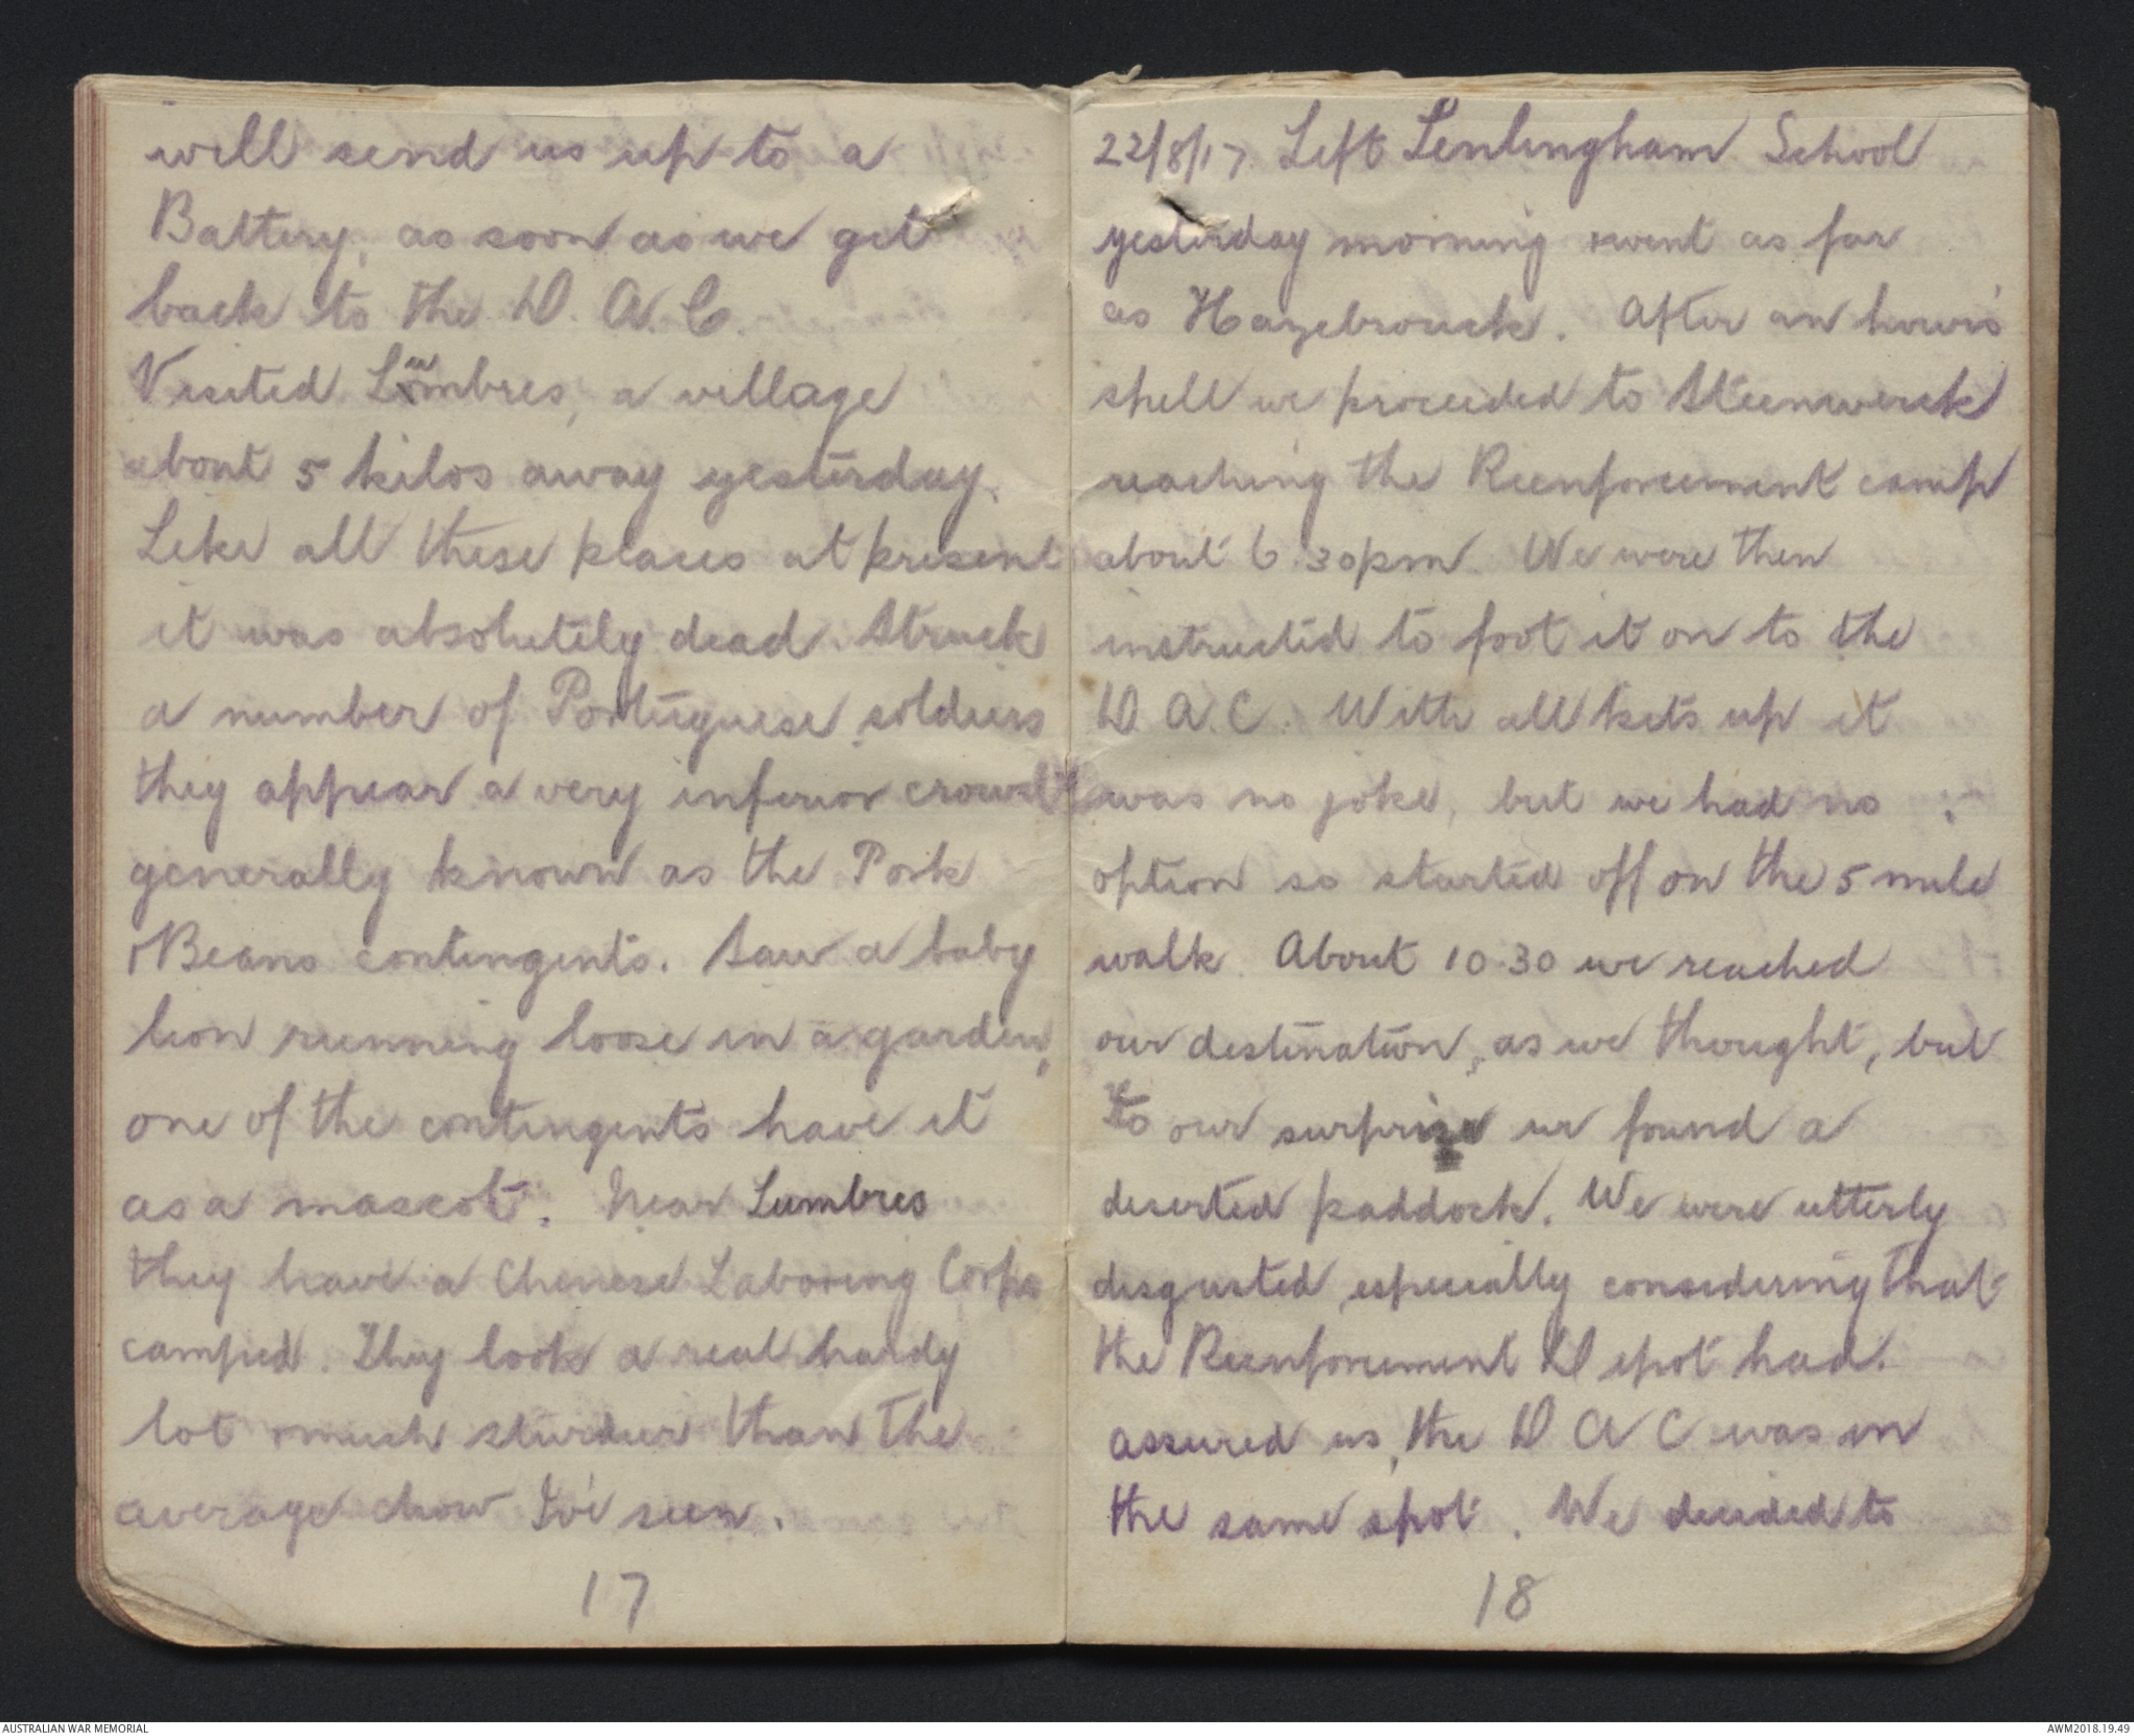 will send us up to a
Battery, as soon as we get
back to the D. A. C.
Visited Lumbres, a village
about 5 kilos away yesterday.
Like all these places at present
it was absolutely dead. Struck
a number of Portuguese soldiers
they appear a very inferior crowd
generally known as the Pork
& Beans contingents. Saw a baby
lion running loose in a garden,
one of the contingents have it
as a mascot. Near Lumbres
they have a Chinese Laboring Corps
camped. They look a real hardy
lot & much sturdier than the
average chow I've seen.
17
22/8/17. Left Lenlingham School
yesterday morning & went as far
as Hazebrouck. After an hour's
spell we proceeded to Steenwerck
reaching the Reenforcement camp
about 6.30pm. We were then
instructed to foot it on to the
D. A. C. With all kits up it
was no joke, but we had no
option so started off on the 5 mile
walk. About 10.30 we reached
our destination, as we thought, but
to our surprise we found a
deserted paddock. We were utterly
disgusted, especially considering that
the Reenforcement Depot had
assured us, the D A C was in
the same spot. We decided to
18
AUSTRALIAN WAR MEMORIAL
AWM2018.19.49